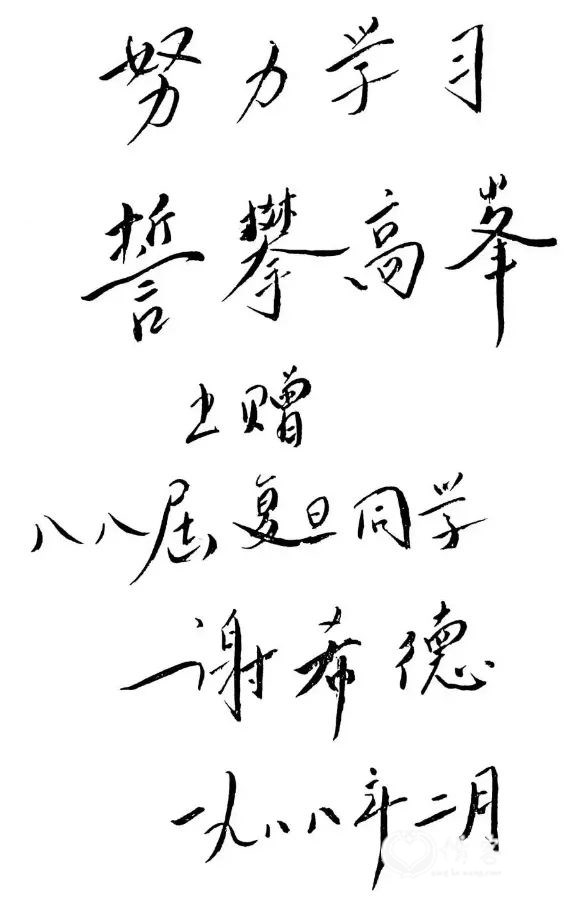 努力学习
誓攀高峯
书赠
八八届复旦同学
谢希德
一九八八年二月